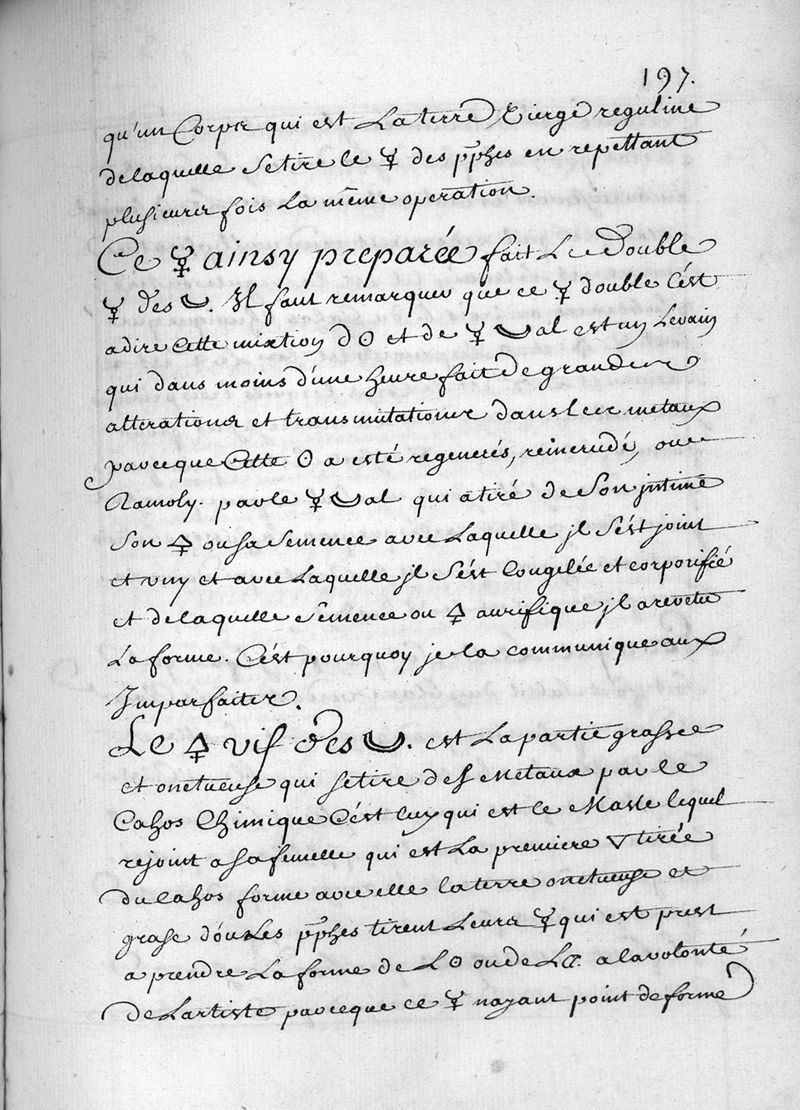 197.
qu'un Corps qui est La terre Vierge reguline
de laquelle se tire le ☿ des pphes en repettant
plusieurs fois La même operation.
Ce ☿ ainsy preparée fait Le Double
☿ des ☽. Il faut remarquer que ce ☿ double C'est
a dire Cette mixtion d'☉ et de ☿ ☽al est un Levain
qui dans moins d'une heure fait de grandes
alterations et transmutations dans les metaux
parceque Cette ☉ a esté regenerés, reincrudé, ou
Ramoly. par le ☿ ☽al qui a tiré de Son jntime
Son 🜍 ou sa Semence avec Laquelle jl S'est joint
et vny et avec Laquelle jl S'est Congelée et corporifié
et de laquelle Semence ou 🜍 aurifique jl a revetu
La forme. C'est pourquoy je la communique aux
Jmparfaits.
Le 🜍 vif des ☽. est La partie grasse
et onctueuse qui se tire des Metaux par le
Cahos Chimique C'est luy qui est le Masle lequel
rejoint a sa femelle qui est La premiere 🜄 tirée
du Cahos forme avec elle la terre onctueuse et
grase d'ou Les pphes tirent Leurs ☿ qui est prest
a prendre La forme de L☉ ou de L☾. a la volonté
de Lartiste parceque ce ☿ nayant point de forme